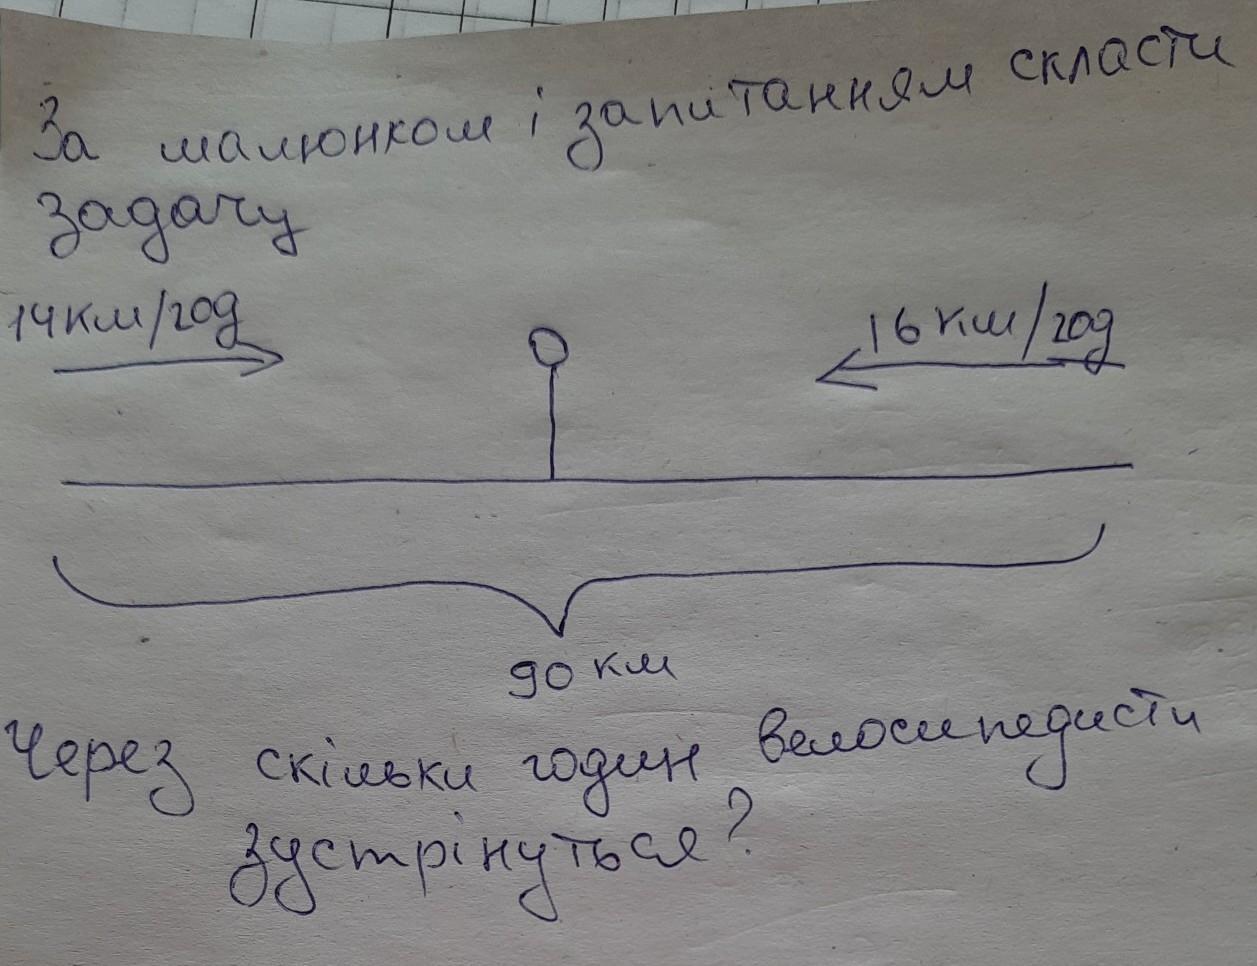 За малюнком і запитанням скласти
задачу
14км/год
16 км/год
90 км
Через скільки годин велосипедисти
зустрінуться?